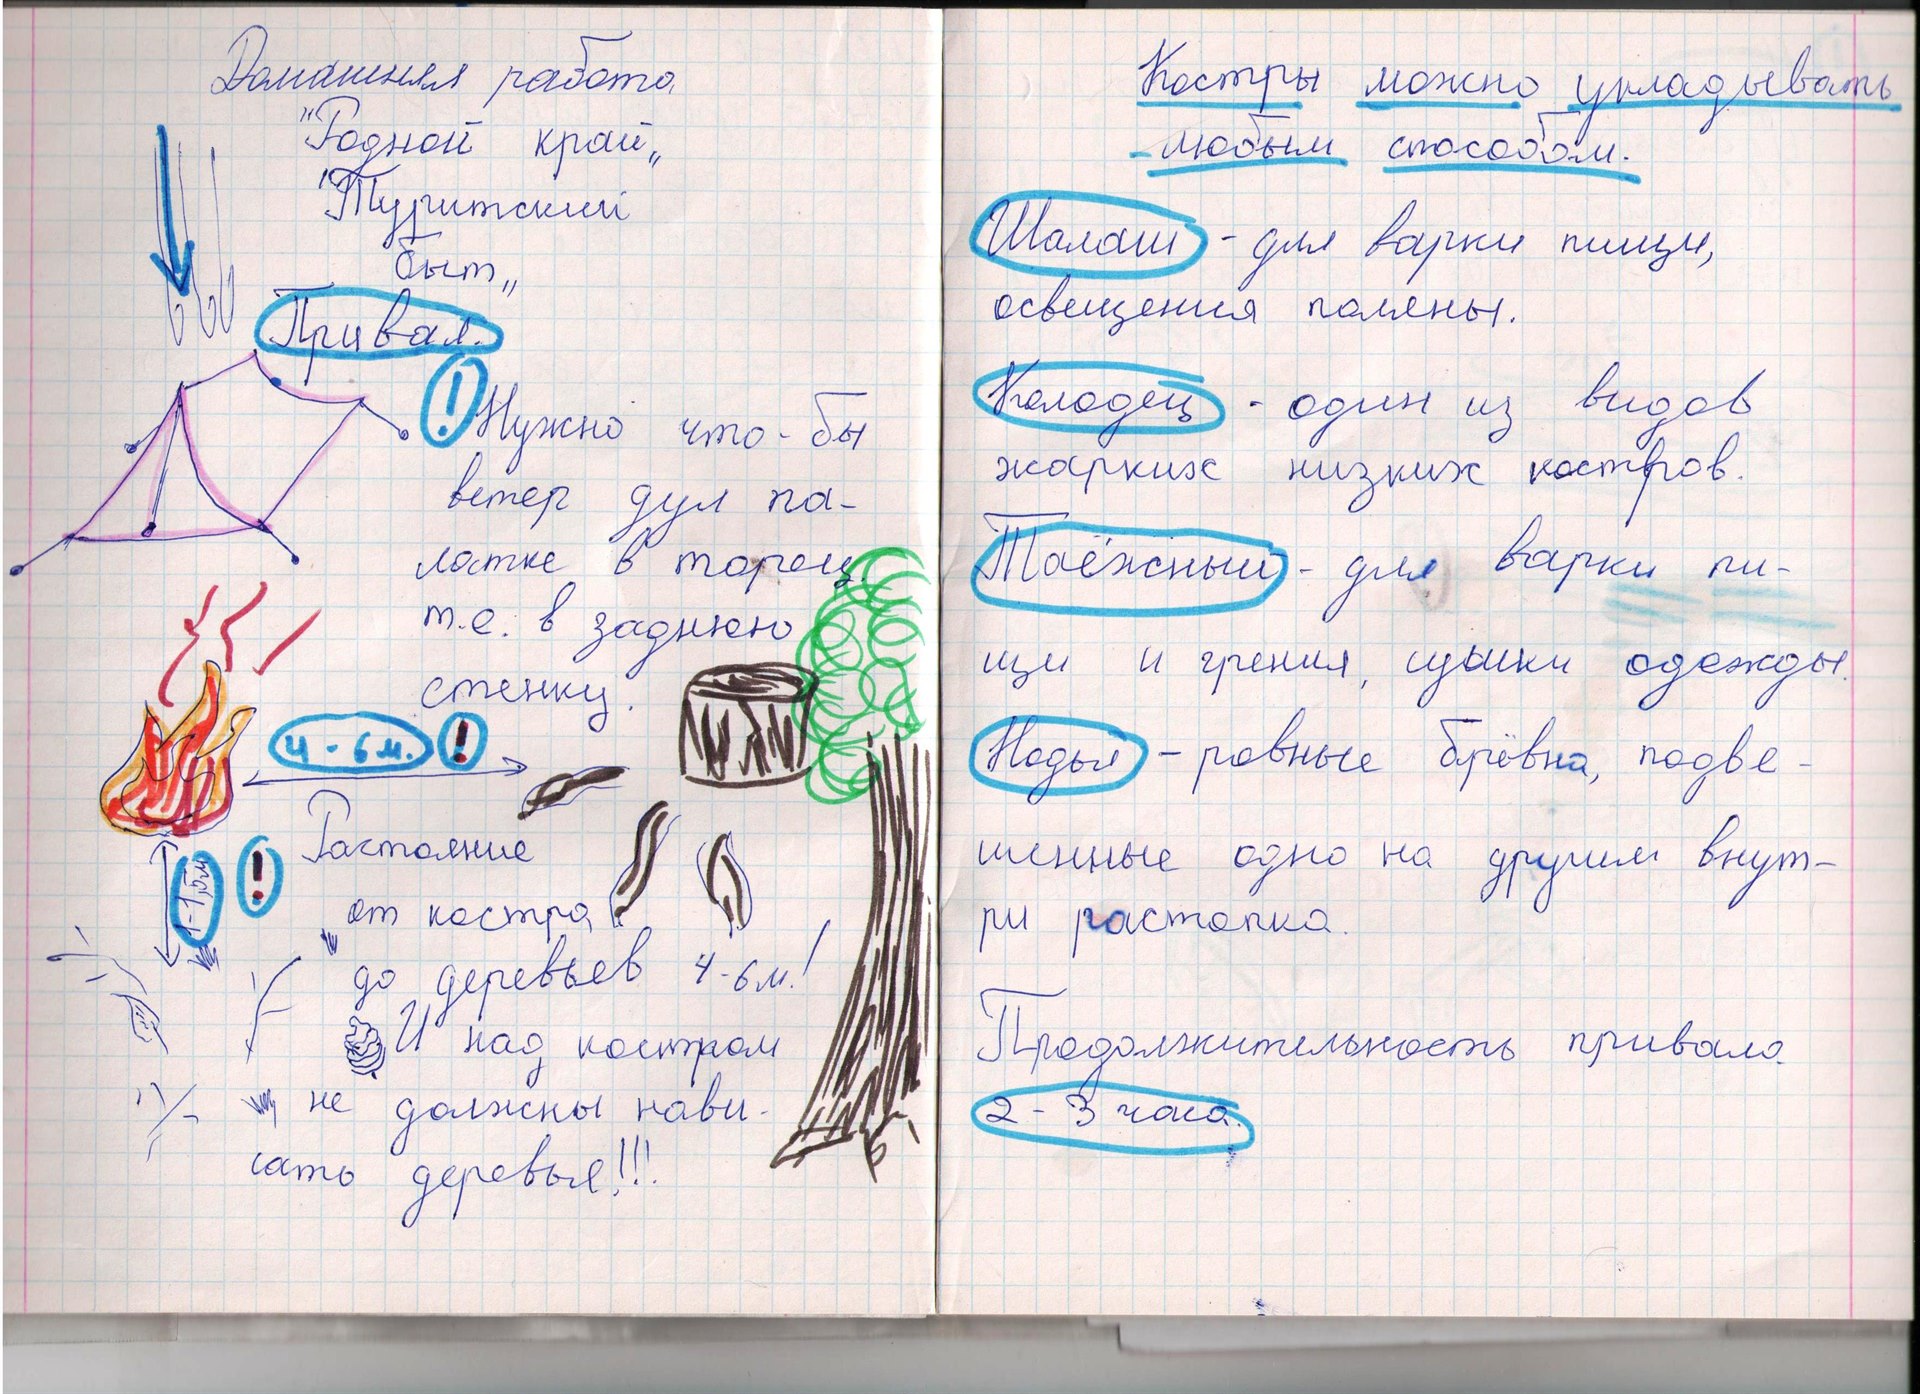 Домашняя работа
"Родной край„
"Туритский
быт„
Привал.
! Нужно что-бы
ветер дул па-
латке в торец
т.е. в заднюю
стенку.
4-6м. !
1-1,5м !
Растояние
от костра
до деревьев 4-6м!
И над костром
не должны нави-
сать деревья!!!
Костры можно укладывать
любым способом.
Шалаш - для варки пищи,
освещения поляны.
Колодец - один из видов
жарких низких костров.
Таёжный - для варки пи-
щи и грения, сушки одежды.
Нодья - ровные брёвна, подве-
шенные одно на другим внут-
ри растопка.
Продолжительность привала
2-3 часа.